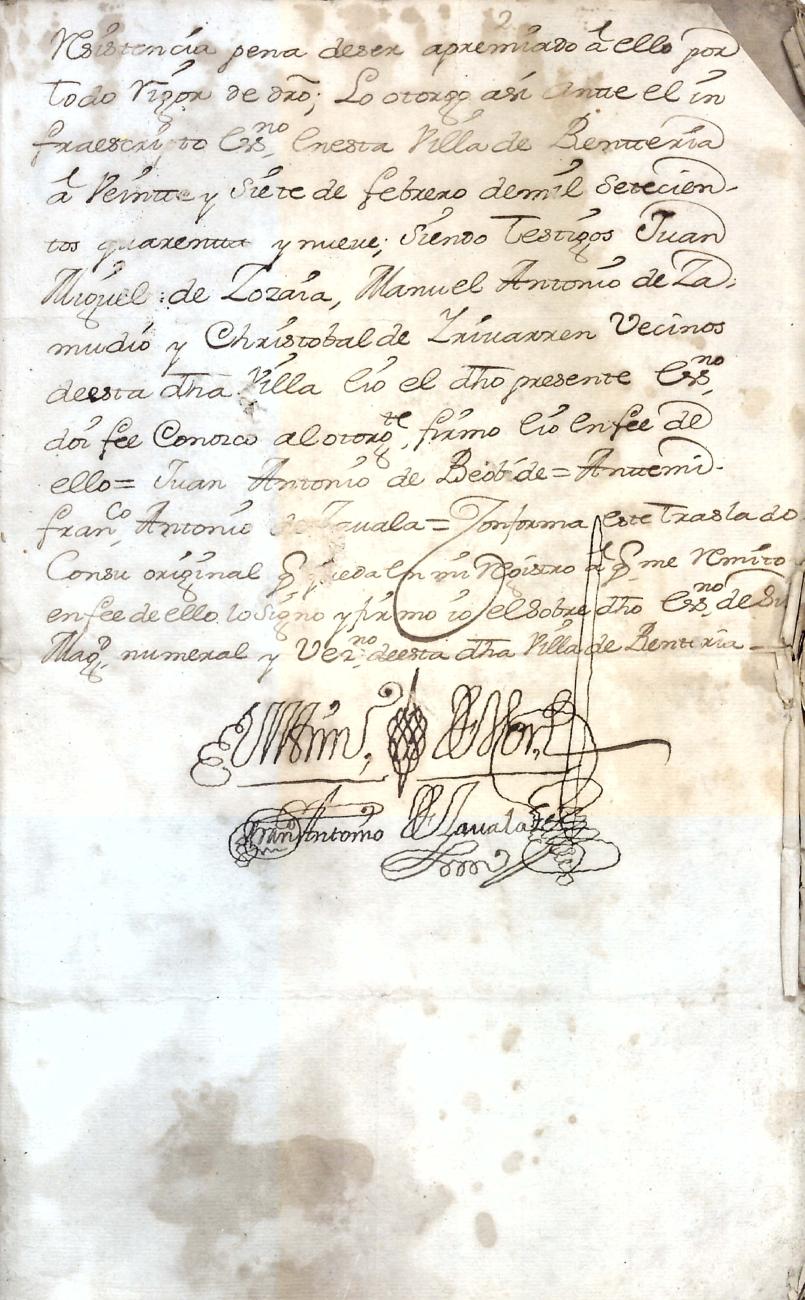 2
Resistencia pena deser apremiado â ello por
todo Vigor de dro; Lo otorgo asi Ante el in
fraescripto Essno, Enesta Villa de Rentteria
â Veintte y Siete de febrero demil Setecien-
tos quarentta y nueve; Siendo Testigos Juan
Miguel de Lozaia, Manuel Antonio de Za-
mudio y Christobal de Yrivarren Vecinos
deesta dha Villa Eio el dho presente Essno,
doi fee Conozco al otorgte, firmo Eio Enfee de
ello= Juan Antonio de Beobide= Anttemi-
franco, Antonio de Zavala= Conforma este traslado
Consu original q queda En mi Registro â q me Remito
enfee de ello lo Signo y firmo io el sobre dho Essno, de Su
Magd, numeral y Vezno, deesta dha Villa de Rentteria
Franco Antonio de Zavala